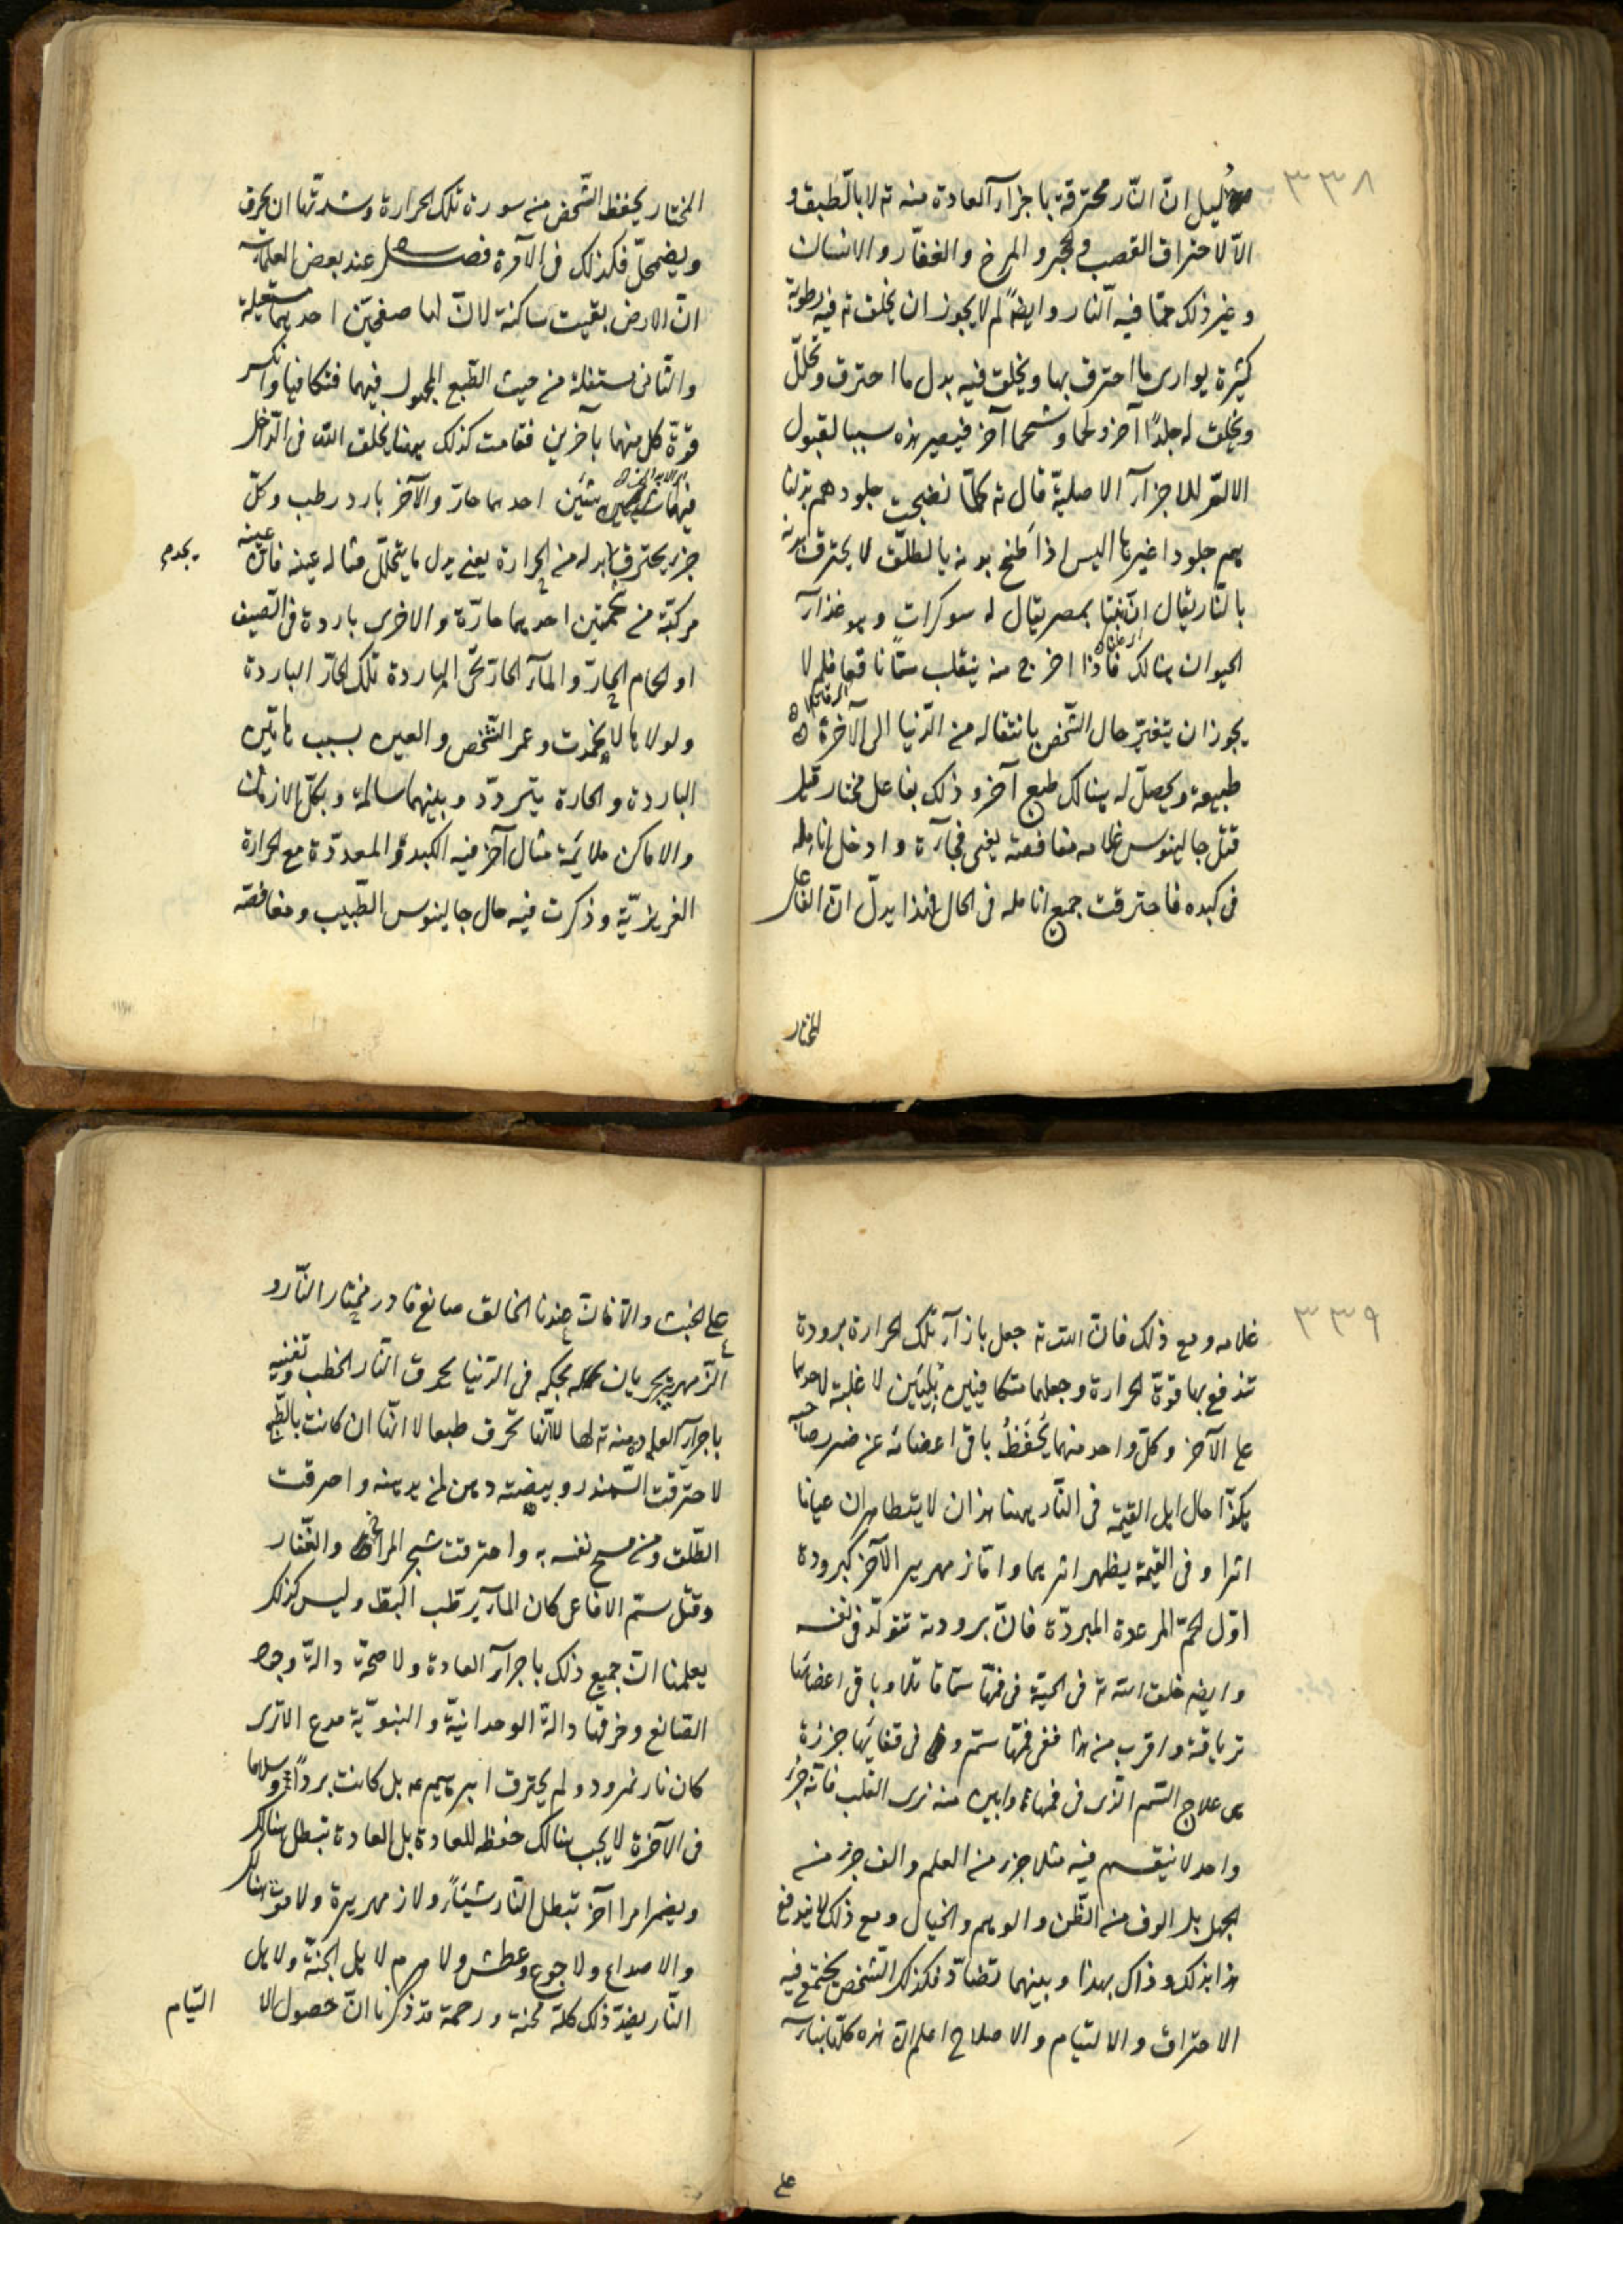 ٣٣٨
دليل انّ النّار محترقة باجزآء العادة منه تع لا بالطبق و
الّا لاحتراق القصب و الحجر و المرخ و العفار و الانسان
و غير ذلك ممّا فيه النّار و ايضاً لم لا يجوز ان يخلق تع فيه رطوبة
كثيرة يوارى ما احترق بها و يخلق فيه بدل ما احترق و تحلّل
و يخلق له جلداً آخر و لحما و شحما آخر فيصير هذه سببا لقبول
الالم للاجزآء الاصليّة قال تع كلّما نضجت جلودهم بدلنا
هم جلودا غيرها اليس اذا طنخ بدنه بالطلق لا يحترق بدنه
بالنّار يقال انّ نبتا بمصر يقال له سوكرات و هو غذآء
الحيوان هنالك فاذا اخرج منه ينقلب سمّا ناقعا فلم لا
يجوز ان يتغيّر حال الشّخص بانتقاله من الدّنيا الى الآخرة
طبيعة و يحصل له هنالك طبع آخر و ذلك بفاعل مختار قيل
قتل جالينوس غلامه مغافصة يعنى فجآءة و ادخل انامله
فى كبده فاحترقت جميع انامله فى الحال فهذا يدلّ انّ الفاعل
المختار
المختار يحفظ الشّخص من سورة تلك الحرارة و شدّتها ان يحرق
و يضمحلّ فكذلك فى الآخرة فصل عند بعض العلمآء
انّ الارض بقيت ساكنة لانّ لها صفحتين احديهما مستعلية
و الثّانى مستفلة من حيث الطّبع المجهول فيهما فتكافيا و انكسر
قوّة كل منهما بآخرين فقامت كذلك ههنا يخلق اللّه فى الدّاخل
فيها شيئين احدهما حارّ و الآخر بارد رطب و كلّ
جزء يحترق بدله من الحرارة يعنى بدل ما يتحلّل مثاله عينه فانّ عينه
يجدم
مركّبة من شحمتين احديهما حارّة و الاخرى باردة فى الصّيف
او الحمام الحارّ و المآء الحارّ تحمى الباردة تلك الحارّ الباردة
و لولاها لا يخمدت و عمر الشّخص و العين بسبب هاتين
الباردة و الحارة يتردّد و بينهما سالمة و بكلّ الازمان
و الاماكن ملائمة مثال آخر فيه الكبد و المعدّة مع الحرارة
الغريزيّة و ذكرت فيه حال جالينوس الطّبيب و مغافصة
٣٣٩
غلامه و مع ذلك فانّ اللّه تع جعل بازآء تلك الحرارة برودة
تندفع بها قوّة الحرارة و جعلهما متكافيين لا غلبة لاحدهما
على الآخر و كلّ واحد منهما يُحفَظُ باقى اعضائه عن ضرر صاحبه
هكذا حال اهل القيمة فى النّار ههنا هذان لا يظهران عيانا
اثرا و فى القيمة يظهر اثرهما و امّا زمهرير الآخر كبرودة
اوّل الحمّ المرعدة المبردّة فانّ برودته تتولّد فى نفسه
و ايضا خلق اللّه تع فى الحيّة فى فمها سمّا قاتلا و باقى اعضائها
ترياقة و اقرب من هذا ففى فمها سمّ و فى قفائها خرزة
هى علاج السّم الّذى فى فمها و ابين منه نرى القلب فانّه جزء
واحد لا ينقسم فيه مثلا جزء من العلم و الف جزء من
الجهل بل الوف من الظّن و الوهم و الخيال و مع ذلك لا يندفع
هذا بذلك و ذاك بهذا و بينهما تضادّ فكذلك الشّخص يجتمع فيه
الاحتراق و الالتيام و الاصلاح اعلم انّ هذه كلّها بنآء
على
على الخبث و الّا فانّ عندنا الخالق صانع قادر مختار النّار و
الزّمهرير يجريان بحكمه فى الدّنيا يحرق النّار الحطب و تفنيه
باجرآء العادة منه تع لها لا انّها تحرق طبعا لا انّها ان كانت بالطّبع
لاحترقت السّمندر و بيضته و من لم يدهنه و احرقت
الطّلق و من مسح نفسه به و احترقت شجر المرخ و العفار
و قتل سمّ الافاعى كان المآء يرطب البطّ و ليس كذلك
يعلمنا انّ جميع ذلك باجرآء العادة و لا صحّة دالّة وجود
الصّانع و خرقها دالّة الوحدانيّة و النبويّة مدع الاترى
كان نار نمرود و لم يحترق ابرهيم عم بل كانت برداً و سلاما
فى الآخرة لا يجب هنالك حفظه للعادة بل العادة تبطل هنالك
و يضمر امرا آخر تبطل النّار شيئاً و لا زمهريرة و لا موت هنالك
و الا صداع و لا جوع و عطش و لا هرم لاهل الجنّة و لاهل
النّار بضدّ ذلك كلّه محنة و رحمة قد ذكرنا انّ حصول الا
التيام